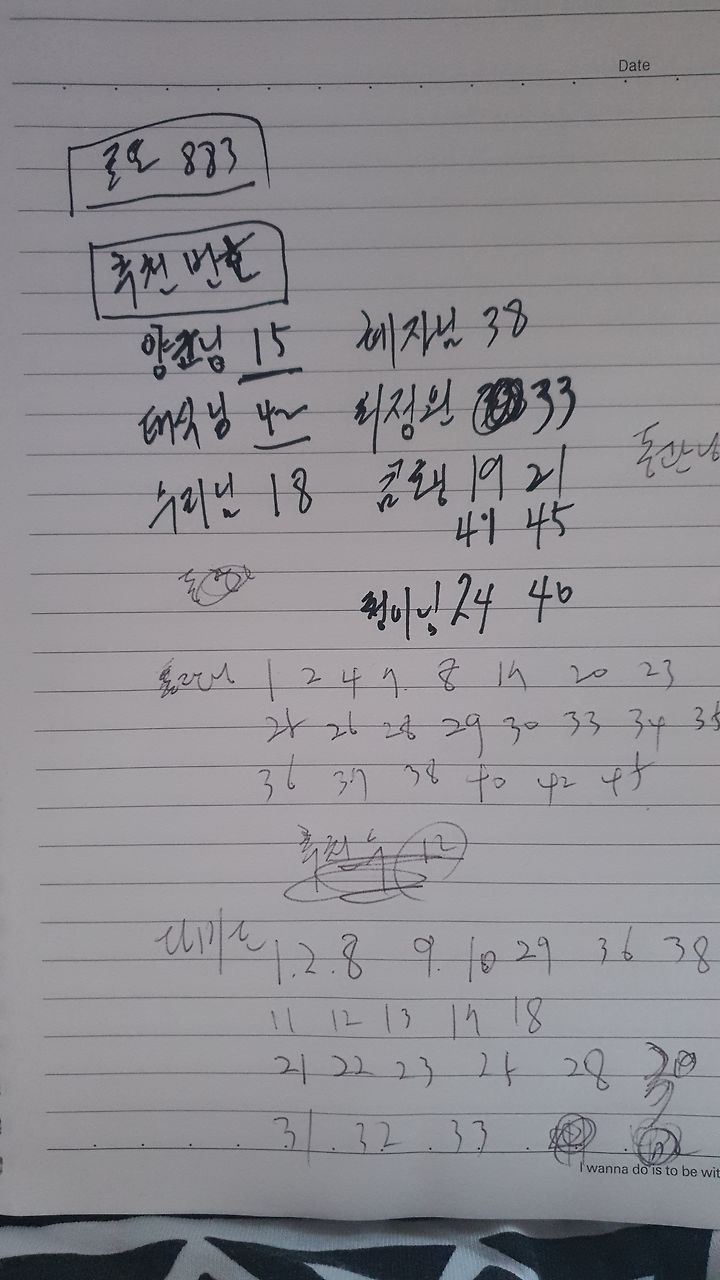 Date
로또 883
추천 번호
양코님 15 혜자님 38
태식님 42 최정원 33
수리님 18 콤퓨 19 21
41 45
청이님 24 40
1 2 4 7. 8 17 20 23
25 26 28 29 30 33 34 35
36 37 38 40 42 45
추천수 12
1. 2. 8 9. 10 29 36 38
11 12 13 17 18
21 22 23 25 28
31. 32. 33
I wanna do is to be wit